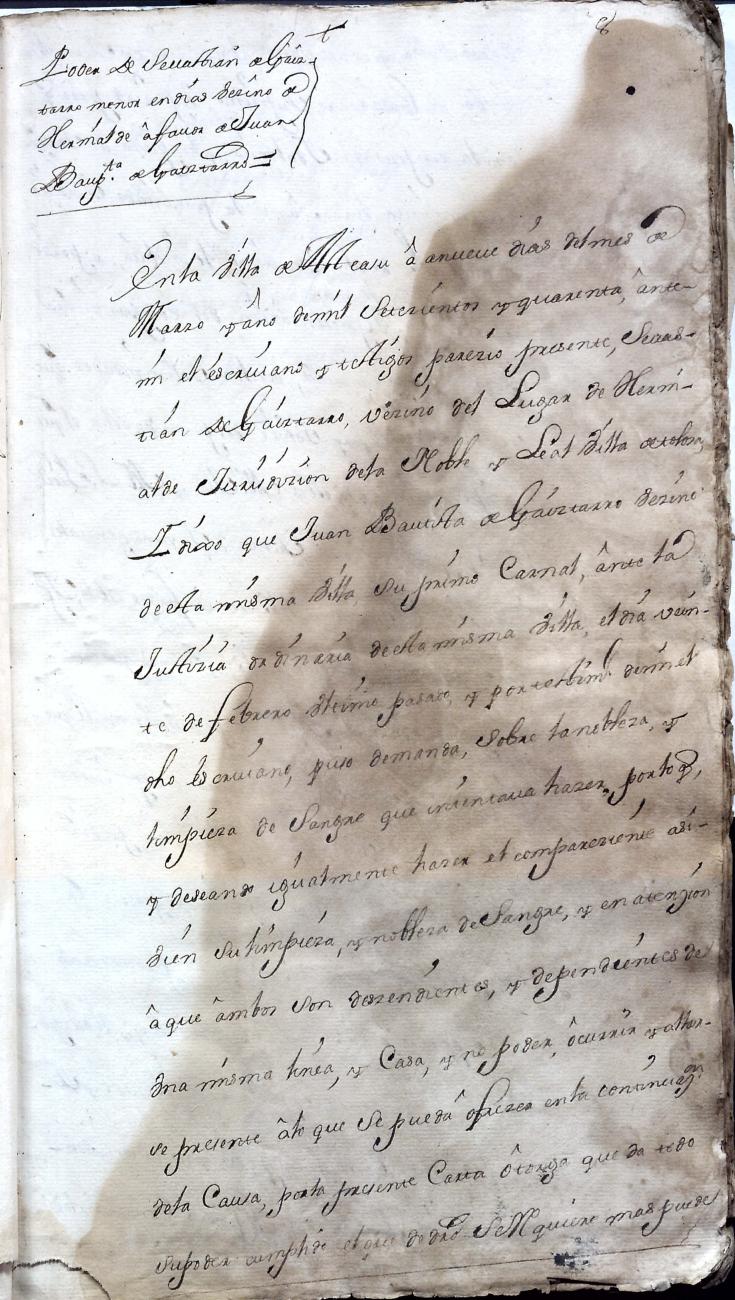 8
Poder de Sevastian de Gaiz-
tarro menor en dias vezino de
Hernialde â favor de Juan
Baupta de Gaiztarro =
En la Villa de Aleasu â a nueve dias del mes de
Marzo y año de mil Setezientos y quarenta, ânte-
mi el êscrivano y testigos parezio presente, Sevas-
tian de Gaiztarro, vezino del Lugar de Herni-
alde Jurisdizion de la Noble y Leal Villa de tolosa,
I dixo que Juan Bautista de Gaiztarro vezino
de esta misma Villa su primo Carnal, ânte la
Justizia ordinaria de esta misma Villa, el dia vein-
te de febrero ultimo pasado, y por testimo de mi el
dho êscrivano, puso demanda, sobre la nobleza, y
limpieza de Sangre que intentava hazer, por lo q,
y deseando igualmente hazer el compareziente asi-
vien su limpieza, y nobleza de Sangre, y en atenzion
â que âmbos son deszendientes, y dependientes de
una misma linea, y Casa, y no poder, ôcurrir y allar-
se presente âlo que se pueda ofrezer en la continuazon
de la Causa, por la presente Carta ôtorga que da todo
su poder cumplido el que de dro se requiere mas puede